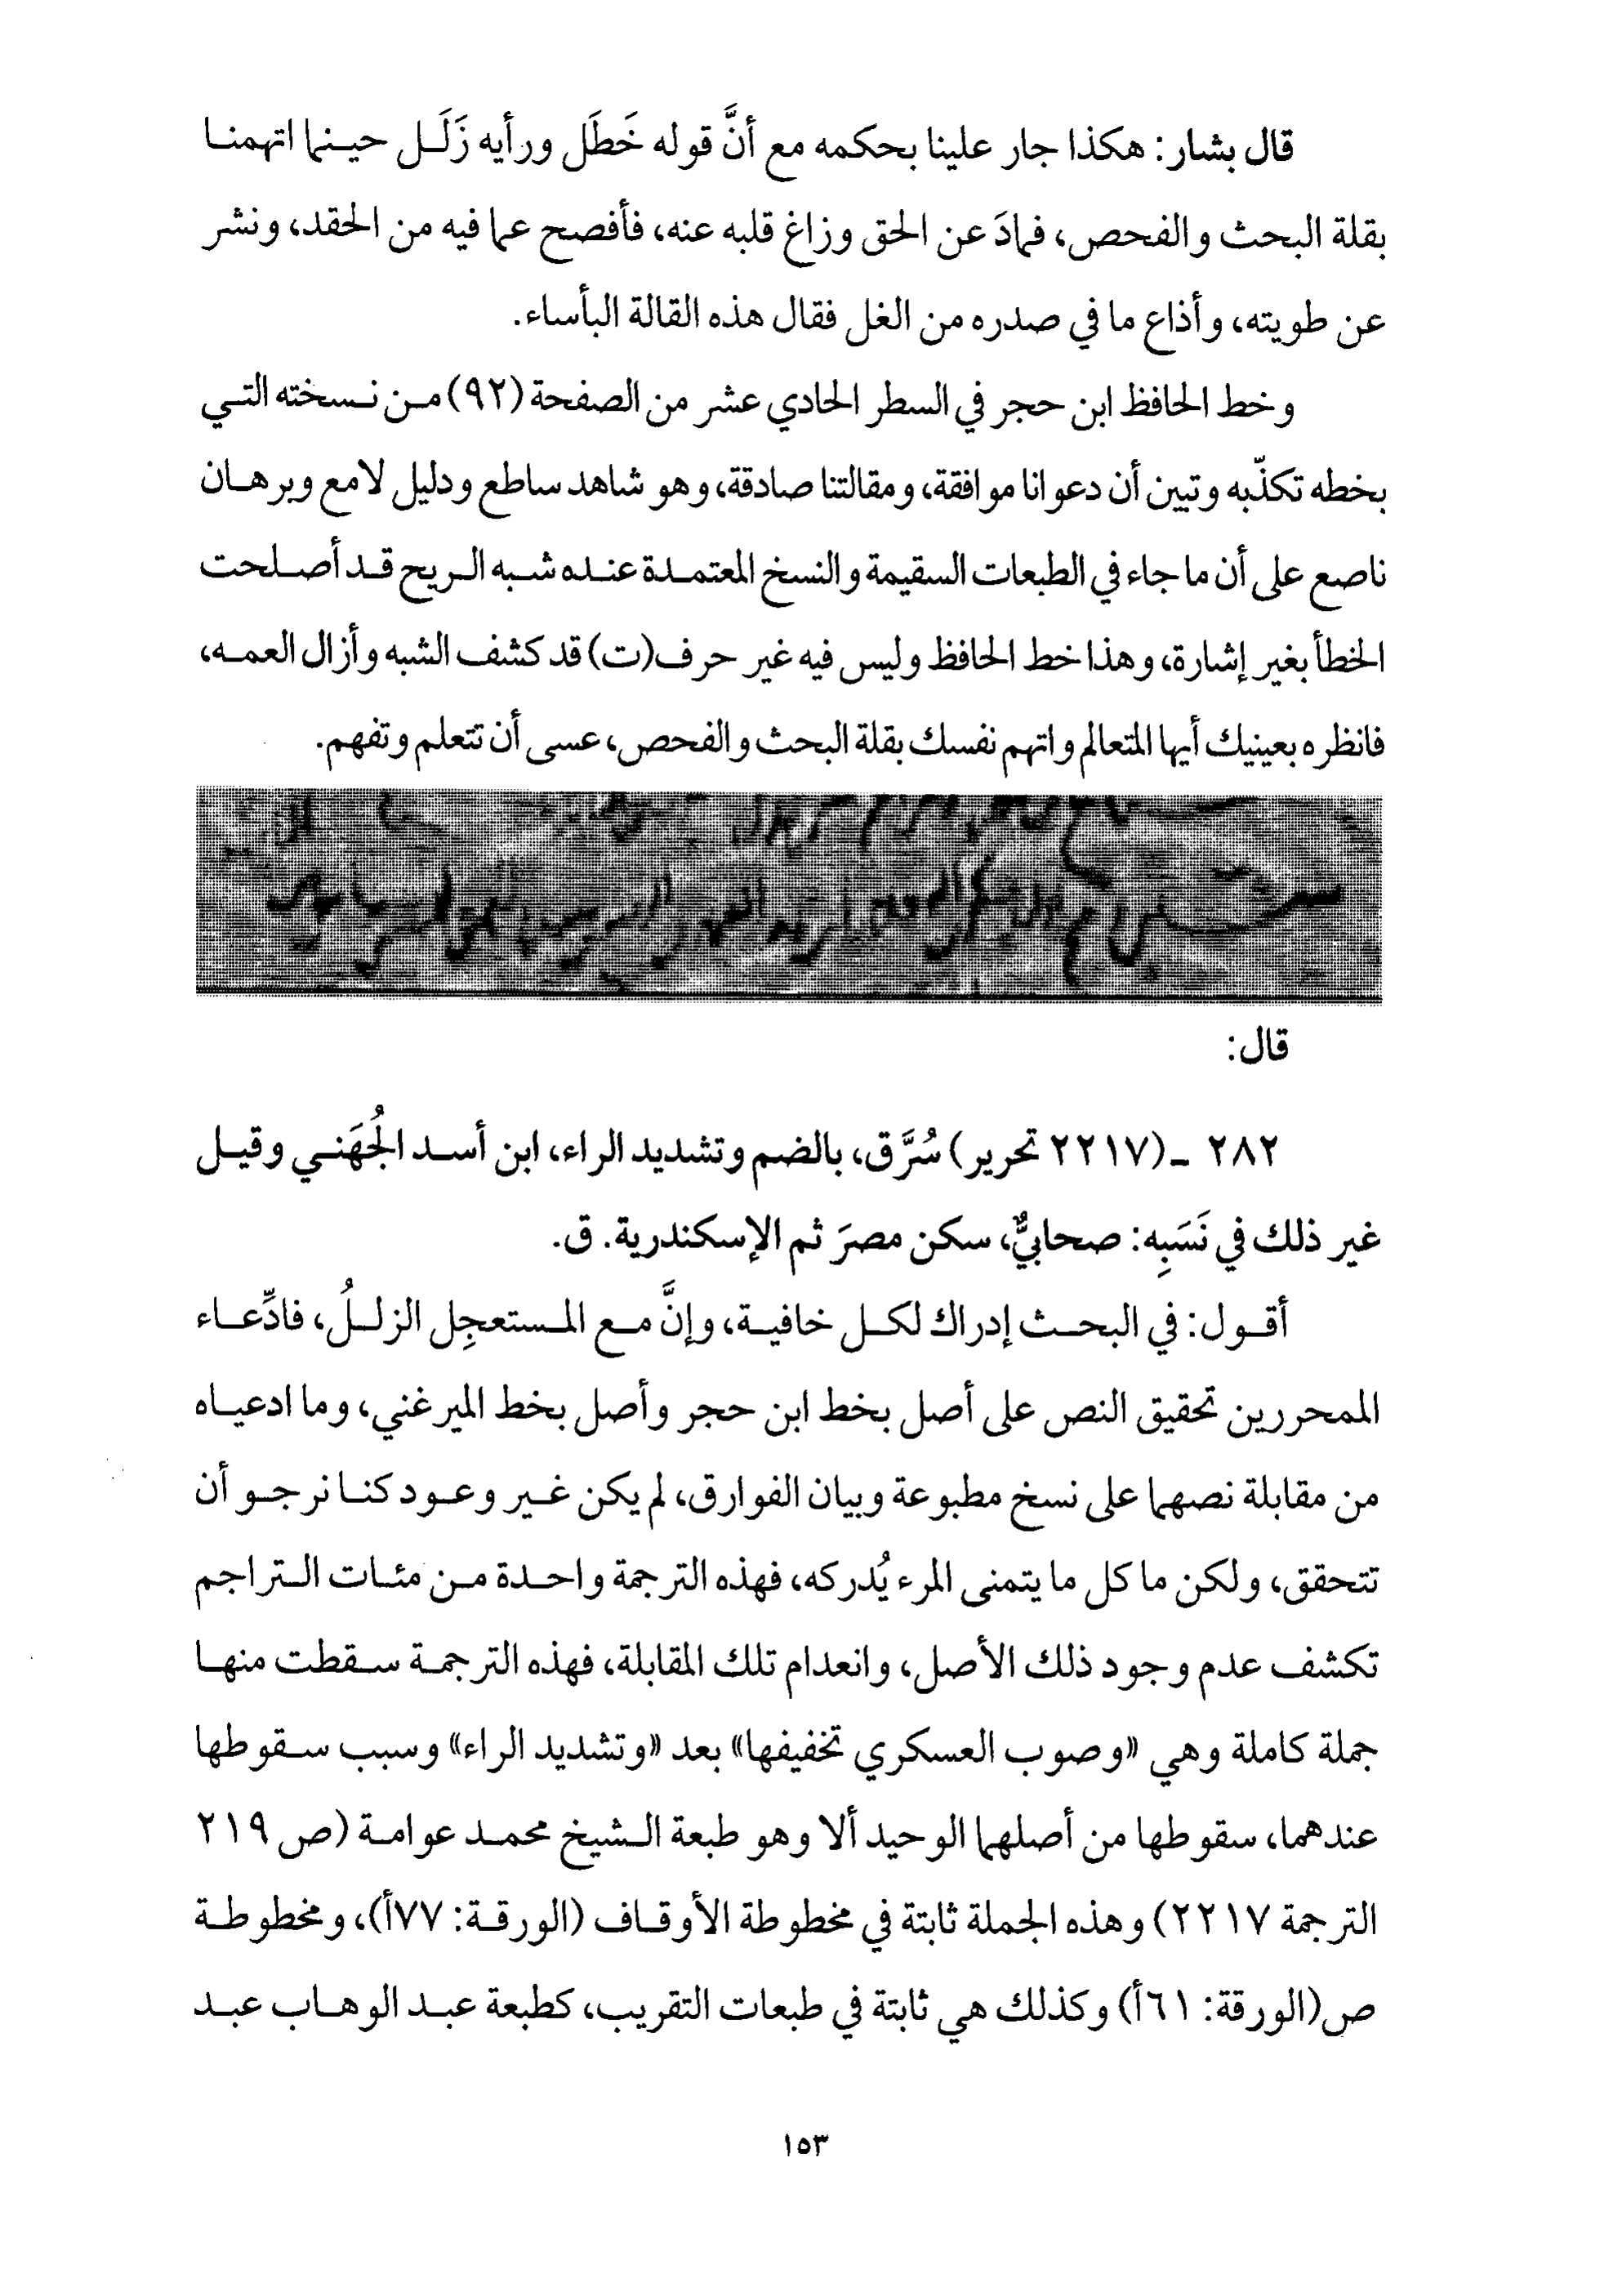 قال بشار: هكذا جار علينا بحكمه مع أنَّ قوله خَطَل ورأيه زَلَل حينما اتهمنا
بقلة البحث والفحص، فمادَ عن الحق وزاغ قلبه عنه، فأفصح عما فيه من الحقد، ونشر
عن طويته، وأذاع ما في صدره من الغل فقال هذه القالة البأساء.
وخط الحافظ ابن حجر في السطر الحادي عشر من الصفحة (٩٢) من نسخته التي
بخطه تكذّبه وتبين أن دعوانا موافقة، ومقالتنا صادقة، وهو شاهد ساطع ودليل لامع وبرهان
ناصع على أن ما جاء في الطبعات السقيمة والنسخ المعتمدة عنده شبه الريح قد أصلحت
الخطأ بغير إشارة، وهذا خط الحافظ وليس فيه غير حرف (ت) قد كشف الشبه وأزال العمه،
فانظره بعينيك أيها المتعالم واتهم نفسك بقلة البحث والفحص، عسى أن تتعلم وتفهم.
قال:
٢٨٢ ـ (٢٢١٧ تحرير) سُرَّق، بالضم وتشديد الراء، ابن أسد الجُهَني وقيل
غير ذلك في نَسَبِه: صحابيٌّ، سكن مصرَ ثم الإسكندرية. ق.
أقول: في البحث إدراك لكل خافية، وإنَّ مع المستعجِل الزللُ، فادِّعاء
المحررين تحقيق النص على أصل بخط ابن حجر وأصل بخط الميرغني، وما ادعياه
من مقابلة نصهما على نسخ مطبوعة وبيان الفوارق، لم يكن غير وعود كنا نرجو أن
تتحقق، ولكن ما كل ما يتمنى المرء يُدركه، فهذه الترجمة واحدة من مئات التراجم
تكشف عدم وجود ذلك الأصل، وانعدام تلك المقابلة، فهذه الترجمة سقطت منها
جملة كاملة وهي «وصوب العسكري تخفيفها» بعد «وتشديد الراء» وسبب سقوطها
عندهما، سقوطها من أصلهما الوحيد ألا وهو طبعة الشيخ محمد عوامة (ص ٢١٩
الترجمة ٢٢١٧) وهذه الجملة ثابتة في مخطوطة الأوقاف (الورقة: ٧٧أ)، ومخطوطة
ص (الورقة: ٦١أ) وكذلك هي ثابتة في طبعات التقريب، كطبعة عبد الوهاب عبد
١٥٣